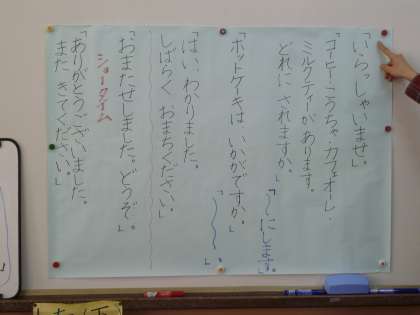 「いらっしゃいませ。」
「コーヒー・こうちゃ・カフェオーレ・
ミルクティーが あります。
どれに されますか。」
「〜にします。」
「ホットケーキは いかがですか。」
「〜。」
「はい、わかりました。
しばらく おまちください。」
「おまたせしました。どうぞ。」
ショータイム
「ありがとうございました。
また きてください。」